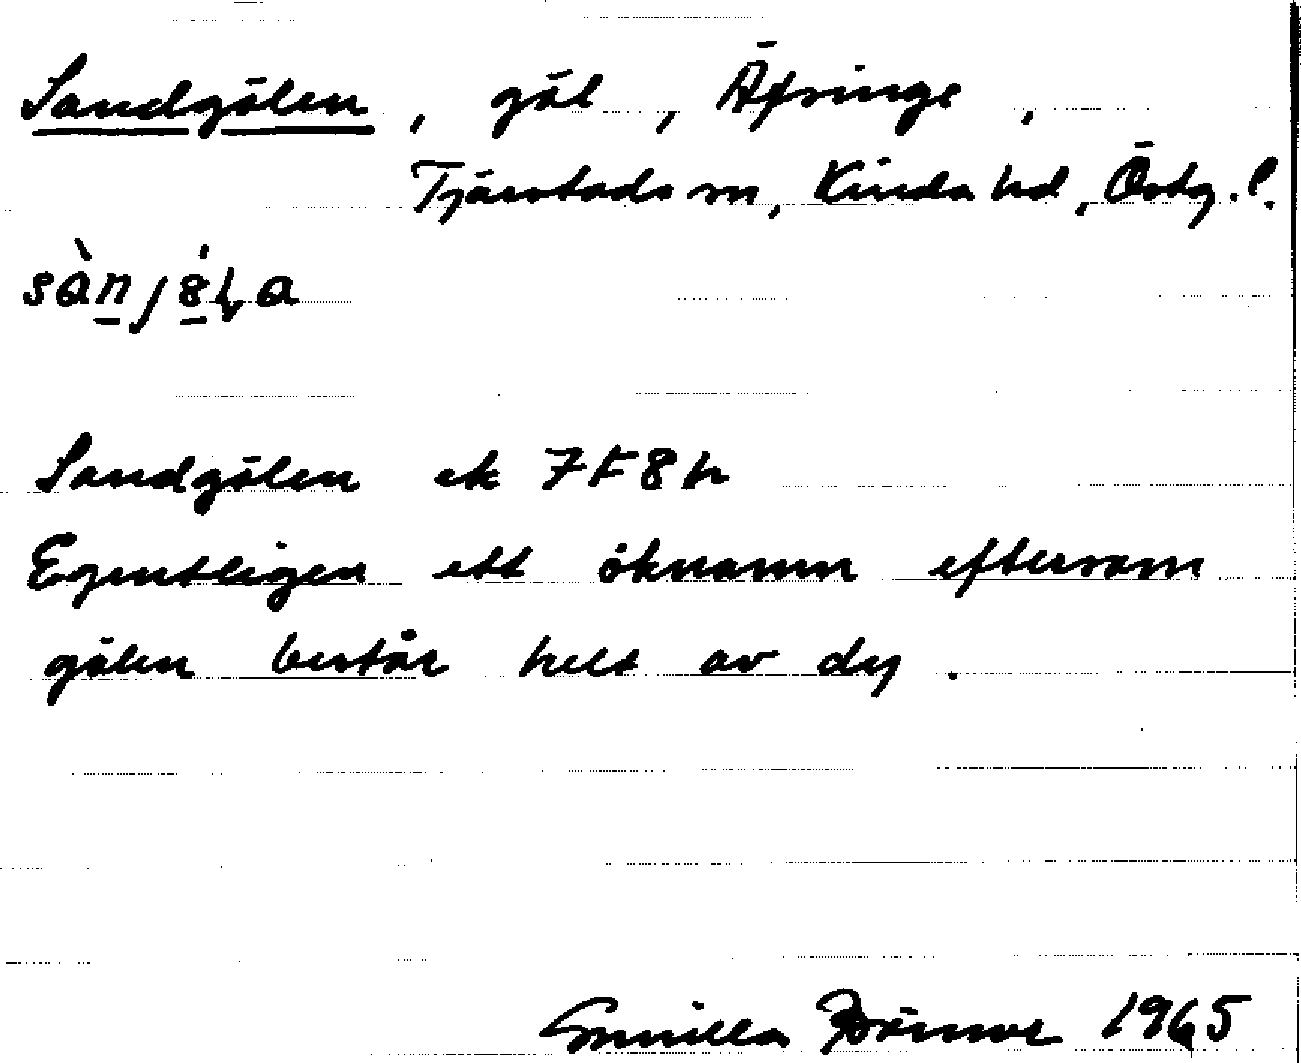 Sandgölen, göl, Äfsinge,
Tjärstads sn, Kinda hd, Östg. l.
Sandgölen ek 7F8h
Egentligen ett öknamn eftersom
gölen består helt av dy.
Gunilla 1965